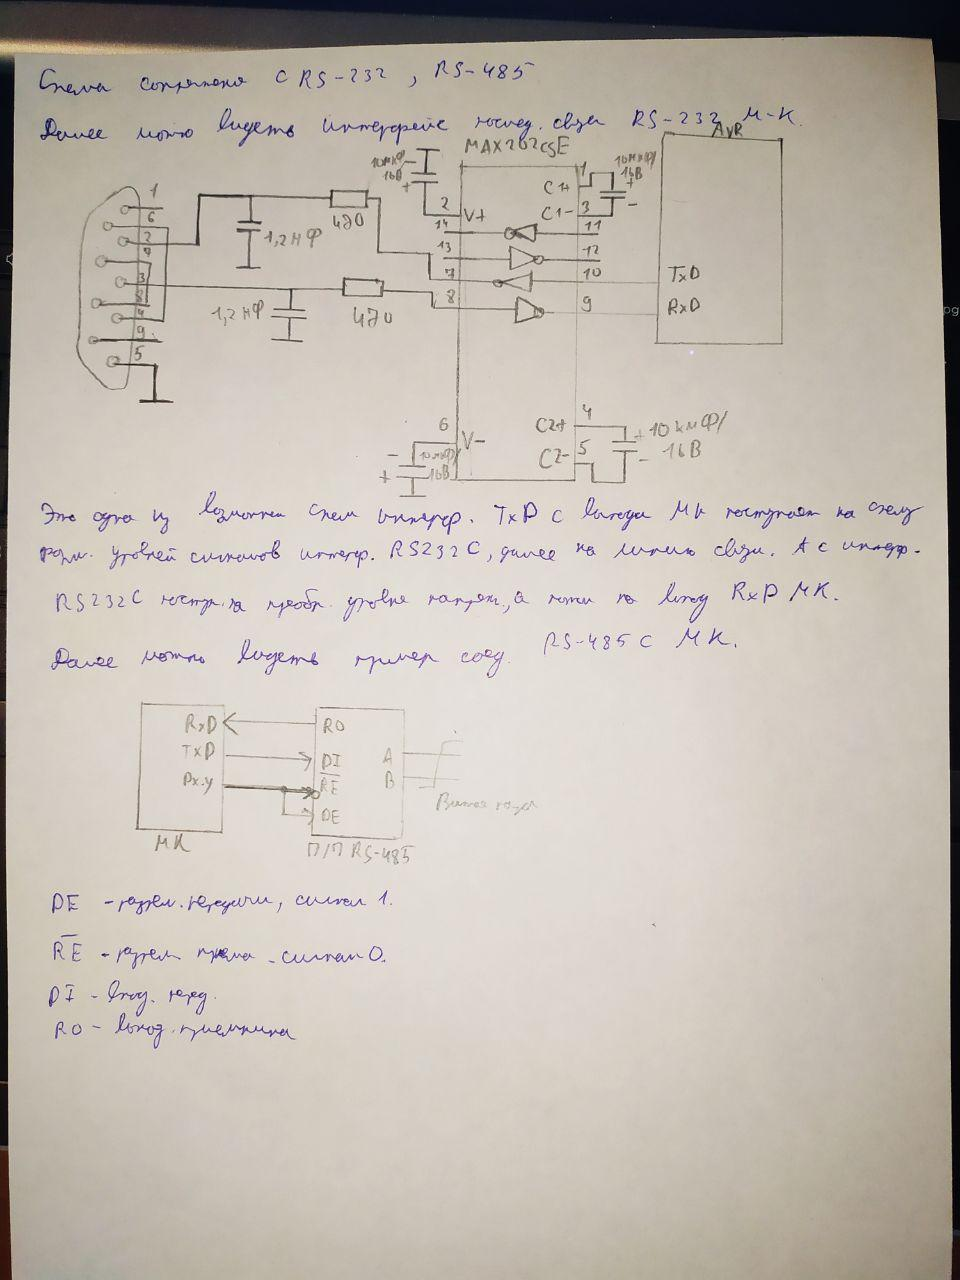 Схема сопряжения с RS-232, RS-485
Далее можно видеть интерфейс послед. связи RS-232 М-К.
MAX202CSE
AVR
10мкф/
16В
10мкф/
16В
1
6
2
7
3
8
4
9
5
1,2нФ
470
1,2нФ
470
2
14
13
7
8
V+
C1+
C1-
1
3
11
12
10
9
TxD
RxD
6
V-
10мкф/
16В
C2+
C2-
4
5
10кмФ/
16В
Это одна из возможных схем интерфр. TxD с выхода МК поступает на схему
форм. уровней сигналов интерф. RS232C, далее на линию связи. А с интерф.
RS232C поступ. на преобр. уровня напряж, а потом на вход RxD МК.
Далее можно видеть пример соед. RS-485 с МК.
RxD
TxD
Px.y
МК
RO
DI
RE
DE
A
B
П/П RS-485
Витая пара
DE - разреш. передачи, сигнал 1.
RE - разреш приема - сигнал 0.
DI - вход. перед.
RO - выход. приемника